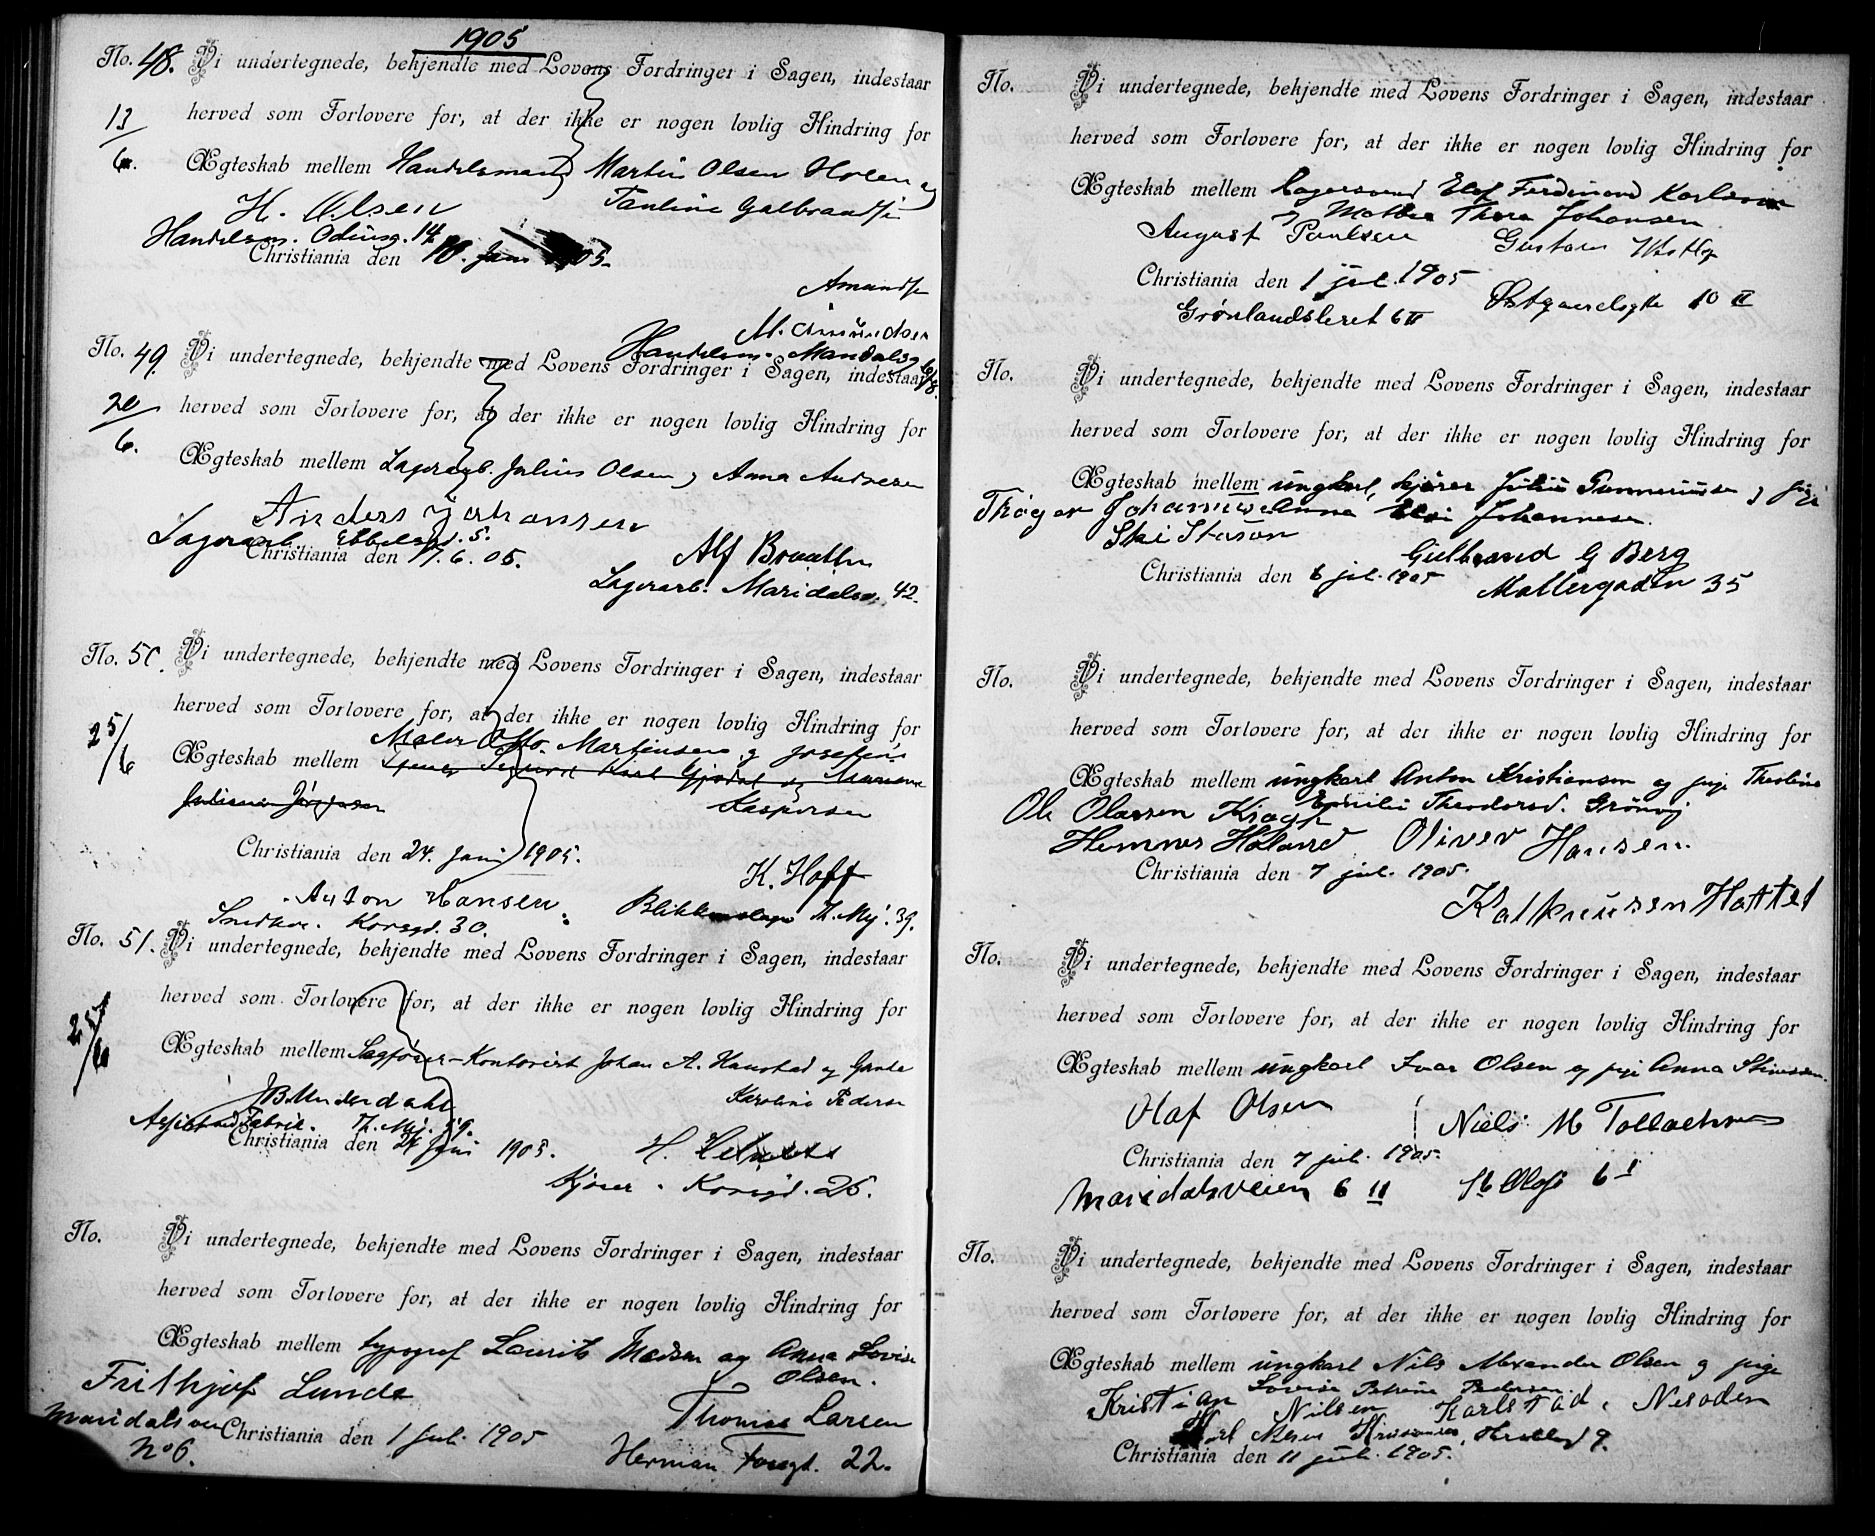 1905
No. 48. Vi undertegnede, bekjendte med Lovens Fordringer i Sagen, indestaar
13/6. herved som Forlovere for, at der ikke er nogen lovlig Hindring for
Ægteskab mellem Handelsmand Martin Olsen Holen og
H. Olsen Pauline Gulbrandsen
Handelsm. Odinsg. 14
Christiania den 10. Juni 1905.
Amundsen
M. Amundsen
Handelsm. Mandalsg
No. 49. Vi undertegnede, bekjendte med Lovens Fordringer i Sagen, indestaar
20/6. herved som Forlovere for, at der ikke er nogen lovlig Hindring for
Ægteskab mellem Lagerarb. Julius Olsen og Anna Andersen
Anders Johansen
Lagerarb. Ebbelsgd. 5.
Christiania den 17.6.05.
Alf Braathen
Lagerarb. Maridalsv. 42.
No. 50. Vi undertegnede, bekjendte med Lovens Fordringer i Sagen, indestaar
25/6 herved som Forlovere for, at der ikke er nogen lovlig Hindring for
Maler Otto Martinsen og Josefine
Ægteskab mellem
Kaspersen
Christiania den 24. Juni 1905.
K. Hoff
Anton Hansen Blikkenslager Th. Mj. 39.
Snedker. Korsgd. 30.
No. 51. Vi undertegnede, bekjendte med Lovens Fordringer i Sagen, indestaar
25/6 herved som Forlovere for, at der ikke er nogen lovlig Hindring for
Ægteskab mellem Sagfører-Kontorist Johan A. Haustad og Grete
Karoline Pedersen
Fabrik. Th. Mj. 59.
Christiania den 24 Juni 1905.
Kjører. Korsgd. 25.
No. Vi undertegnede, bekjendte med Lovens Fordringer i Sagen, indestaar
herved som Forlovere for, at der ikke er nogen lovlig Hindring for
Ægteskab mellem typograf Laurits Madsen og Anna Lovise
Olsen.
Frithjof Lunde
Thomas Larsen
Maridalsveien Christiania den 1 juli 1905
No 6. Herman Foergt. 22.
No. Vi undertegnede, bekjendte med Lovens Fordringer i Sagen, indestaar
herved som Forlovere for, at der ikke er nogen lovlig Hindring for
Ægteskab mellem Lagersvend Elof Ferdinand Karlsson
og Mathea Thora Johansen
August Paulsen Gustav Westby
Christiania den 1 jul. 1905
Grønlandsleret 6 II Østgaardsgt 10 II
No. Vi undertegnede, bekjendte med Lovens Fordringer i Sagen, indestaar
herved som Forlovere for, at der ikke er nogen lovlig Hindring for
Ægteskab mellem ungkarl, kjører Julius Gunneriusen og pige
Anna Johannesen.
Ski Stasion
Gulbrand G Berg
Christiania den 6 jul. 1905
Møllergaden 35
No. Vi undertegnede, bekjendte med Lovens Fordringer i Sagen, indestaar
herved som Forlovere for, at der ikke er nogen lovlig Hindring for
Ægteskab mellem ungkarl Anton Kristiansen og pige Theoline
Emilie Theodorsd. Grønvig
Ole Olaesen Kragt
Hemnes Høland Oliver Hansen.
Christiania den 7 jul. 1905.
No. Vi undertegnede, bekjendte med Lovens Fordringer i Sagen, indestaar
herved som Forlovere for, at der ikke er nogen lovlig Hindring for
Ægteskab mellem ungkarl Ivar Olsen og pige Anna Simensen.
Olaf Olsen Niels M Tollaehsen
Christiania den 7 jul. 1905.
Maridalsveien 6 II St Olafs 6 I
No. Vi undertegnede, bekjendte med Lovens Fordringer i Sagen, indestaar
herved som Forlovere for, at der ikke er nogen lovlig Hindring for
Ægteskab mellem ungkarl Nils Alexander Olsen og pige
Lovise Petrine Pedersen
Kristian Nilsen Karlstad, Nesoden
Christiania den 11 juli 1905.